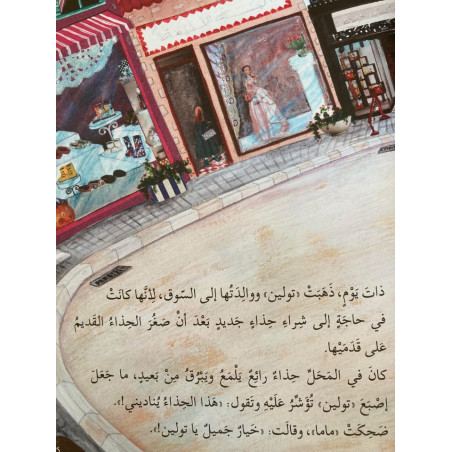 ذاتَ يَوْمٍ، ذَهَبَتْ «تولين» ووالِدَتُها إلى السّوق، لِأنَّها كانَتْ
في حاجَةٍ إلى شِراءِ حِذاءٍ جَديدٍ بَعْدَ أنْ صَغُرَ الحِذاءُ القَديمُ
عَلى قَدَمَيْها.
كانَ في المَحَلِّ حِذاءٌ رائِعٌ يَلْمَعُ ويَبْرُقُ مِنْ بَعيدٍ، ما جَعَلَ
إصْبَعَ «تولين» تُؤَشِّرُ عَلَيْهِ وتَقول: «هَذا الحِذاءُ يُناديني!».
ضَحِكَتْ «ماما»، وقالَت: «خَيارٌ جَميلٌ يا تولين!».